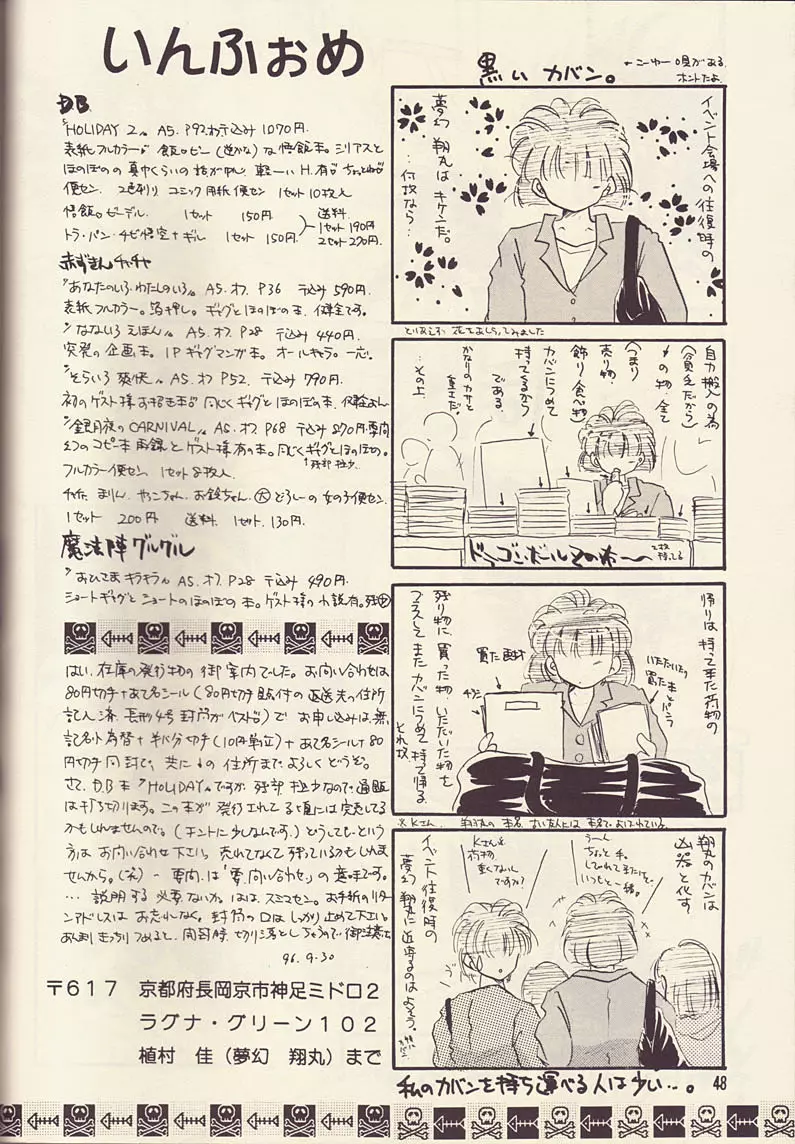 いんふぉめ
D.B.
"HOLIDAY 2" A5. P92. 〒込み 1070円.
表紙フルカラー。飯
便セン. 2色刷り コミック用紙便セン 1セット10枚入
1セット 150円
トラ・パン・チビ悟空+ギル 1セット 150円
送料
1セット 190円
2セット 270円.
赤ずきんチャチャ
"あなたのいろ わたしのいろ" A5. オフ. P36 〒込み 590円.
表紙フルカラー。箔押し。ギャグとほのぼの本. 健全です。
"なないろ えほん" A5. オフ. P28 〒込み 440円.
突発の企画本。1Pギャグマンガ本。オールキャラ。一応。
"そらいろ 爽快" A5. オフ P52. 〒込み 790円.
初のゲスト様お招き本
同じくギャグとほのぼの本.
"銀月夜のCARNIVAL" A5. オフ. P68 〒込み 870円. 要問
幻のコピー本 再録とゲスト様有の本。同じくギャグとほのぼの。
残部極少
フルカラー便セン. 1セット8枚入.
チャチャ まりん やっこちゃん お鈴ちゃん
女の子便セン.
1セット 200円 送料. 1セット. 130円.
魔法陣グルグル
"おひさま キラキラ" A5. オフ. P28 〒込み 490円.
ショートギャグとショートのほのぼの本。ゲスト様の小説有。残
はい. 在庫の発行物の御案内でした。お問い合わせは
80円切手+あて名シール(80円切手貼付の返送先の住所
記入済. 長形4号封筒がベスト)で お申し込みは. 無
記名小為替+半分切手(10円単位)+あて名シール+80
円切手同封で、共に↓の住所まで. よろしくどうぞ。
さて. D.B本"HOLIDAY"ですが. 残部極少なので. 通販
は打ち切ります。この本が発行されてる頃には完売してる
かもしれませんので。(ホントに少しなんです.) どうしても.という
方は お問い合わせ下さい。売れてなくて残っているかもしれま
せんから。(笑) - 要問. は「要.問い合わせ」の意味です。
…説明する必要ないか。ははは. スミマセン。お手紙のリター
ンアドレスは お忘れなく。封筒の口は しっかり止めて下さい。
あんまりきっちりつめると. 開封時. 切り落としちゃうので 御注意を
96. 9. 30
〒617 京都府長岡京市神足ミドロ2
ラグナ・グリーン102
植村 佳(夢幻 翔丸)まで
黒い カバン。
ホントだよ
イベント会場への往復時の
夢幻 翔丸は キケンだ。
…何故なら…
とりあえず 花で あしらってみました
自力搬入の為
(貧乏だから)
↓の物. 全て
(つまり
売り物
飾り
食べ物)
カバンにつめて
持ってくるから
である。
かなりのカサと
重さだ。
…その上…
ドラゴンボールその
帰りは 持って来た荷物の
残り物に、買った物. いただいた物を
プラスして またカバンにつめて 持って帰る
それ故
買った画材
チラシ
いただいたり
買った本とパンフ
翔丸のカバンは
凶器と化す
うーん
ちょっと. 手.
しびれてきたけど…
いつもと一緒。
Kさん
荷物.
重くないん
ですか?
イベント往復時の
夢幻 翔丸に 近寄るのはよそう。
私のカバンを持ち運べる人は少い…。
48